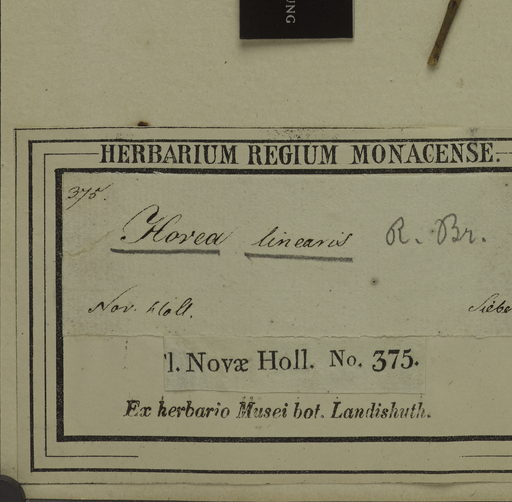 UNG
HERBARIUM REGIUM MONACENSE.
375.
Hovea linearis R. Br.
Nov. Holl. Siebe
l. Novæ Holl. No. 375.
Ex herbario Musei bot. Landishuth.